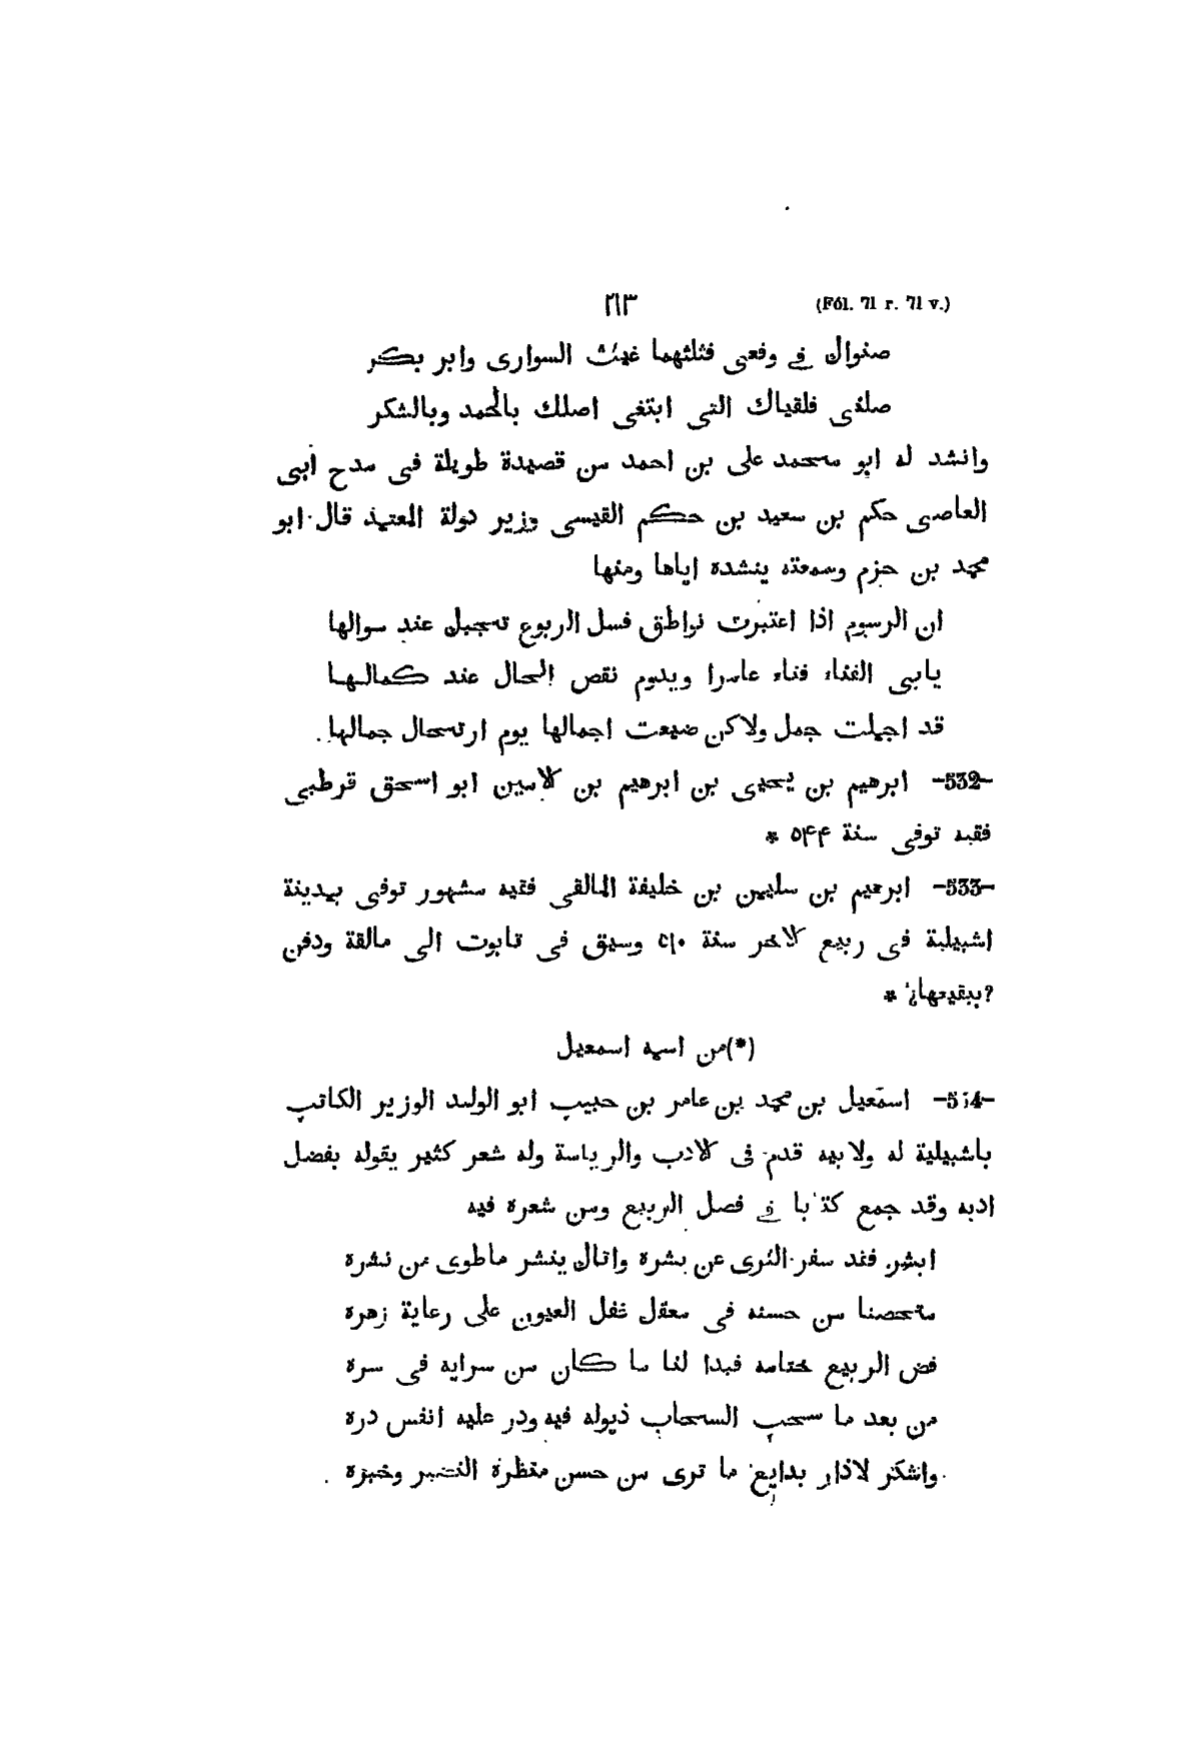 ٢١٣ (Fól. 71 r. 71 v.)
صنوال في وفعى فثلثهما غيث السوارى وابر بكر
صلنى فلقياك التى ابتغى اصلك بالحمد وبالشكر
وانشد له ابو محمد على بن احمد من قصيدة طويلة فى مدح ابى
العاصى حكم بن سعيد بن حكم القيسى وزير دولة المعتد قال ابو
محمد بن حزم وسمعته ينشده اياها ومنها
ان الرسوم اذا اعتبرت نواطق فسل الربوع تجبل عند سوالها
يابى الفناء فناء عامرا ويدوم نقص الحال عند كمالها
قد اجملت جمل ولاكن ضيعت اجمالها يوم ارتحال جمالها
-532- ابرهيم بن يحيى بن ابرهيم بن الامين ابو اسحق قرطبى
فقيه توفى سنة ٥۴۴ *
-533- ابرهيم بن سليمن بن خليفة المالقى فقيه مشهور توفى بمدينة
اشبيلية فى ربيع الاخر سنة ٥١٠ وسيق فى تابوت الى مالقة ودفن
?ببقيعها? *
(*)من اسمه اسمعيل
-534- اسمعيل بن محمد بن عامر بن حبيب ابو الوليد الوزير الكاتب
باشبيلية له ولابيه قدم فى الادب والرياسة وله شعر كثير يقوله بفضل
ادبه وقد جمع كتابا في فصل الربيع ومن شعره فيه
ابشر فقد سفر الثرى عن بشره واتاك ينشر ماطوى من نشره
متحصنا من حسنه فى معقل غفل العيون على رعاية زهره
فض الربيع ختامه فبدا لنا ما كان من سرايه فى سره
من بعد ما سحب السحاب ذيوله فيه ودر عليه انفس دره
وانشكر لاذار بدايع ما ترى من حسن منظره النضير وخبره